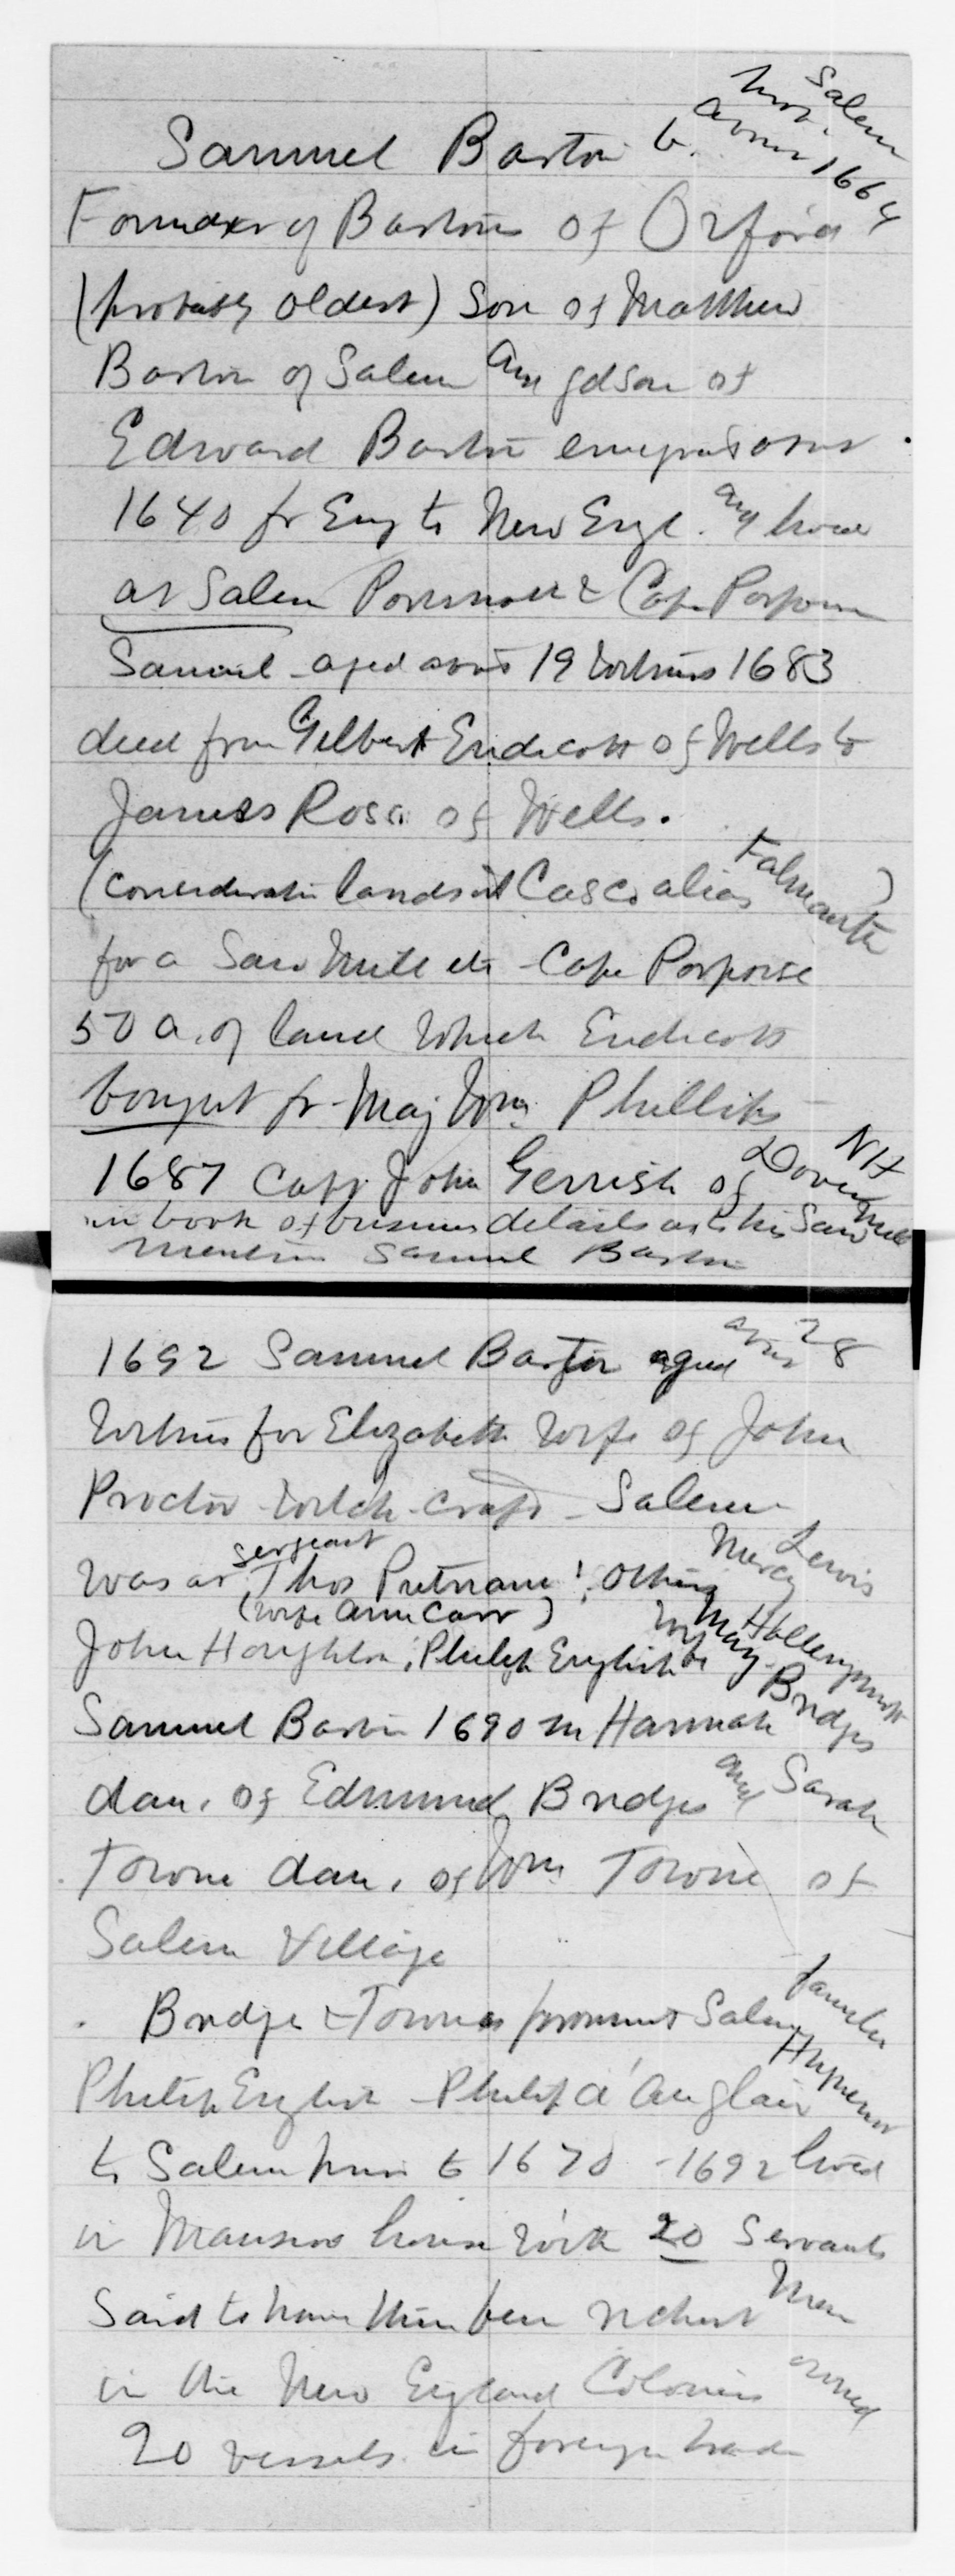 Samuel Barton b. about 1664 Salem
Founder of Bartons of Oxford
(probably oldest) son of Matthew
Barton of Salem and gdson of
Edward Barton
1640 fr Eng to New Engl. and lived
at Salem Portsmouth & Cape Porpoise
Samuel aged about 19 witness 1683
deed from Gilbert Endicott of Wells to
James Ross of Wells.
(consideration lands at Casco alias Falmouth)
for a Saw Mill etc Cape Porpoise
50 a. of land which Endicott
bought fr Maj Wm Phillips
1687 Capt John Gerrish of Dover NH
in book of business details as to his Saw Mill
mention Samuel Barton
1692 Samuel Barton aged about 28
witness for Elizabeth wife of John
Proctor witch-craft Salem
was at sergeant Thos Putnam's others Mercy Lewis
(wife Ann Carr)
John Houghton; Philip English wife Mary Hollingworth
Samuel Barton 1690 m Hannah Bridges
dau. of Edmund Bridges and Sarah
Towne dau. of Wm Towne of
Salem Village
Bridges & Townes prominent Salem families
Philip English - Philip d'Anglais Huguenot
to Salem prior to 1670 - 1692 lived
in Mansion house with 20 servants
Said to have then been richest man
in the New England Colonies owned
20 vessels in foreign trade